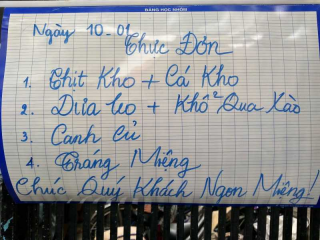 BẢNG HỌC NHÓM
Ngày 10-01
Thực Đơn
1. Thịt Kho + Cá Kho
2. Dưa Leo + Khổ Qua Xào
3. Canh Củ
4. Tráng Miệng
Chúc Quý Khách Ngon Miệng!